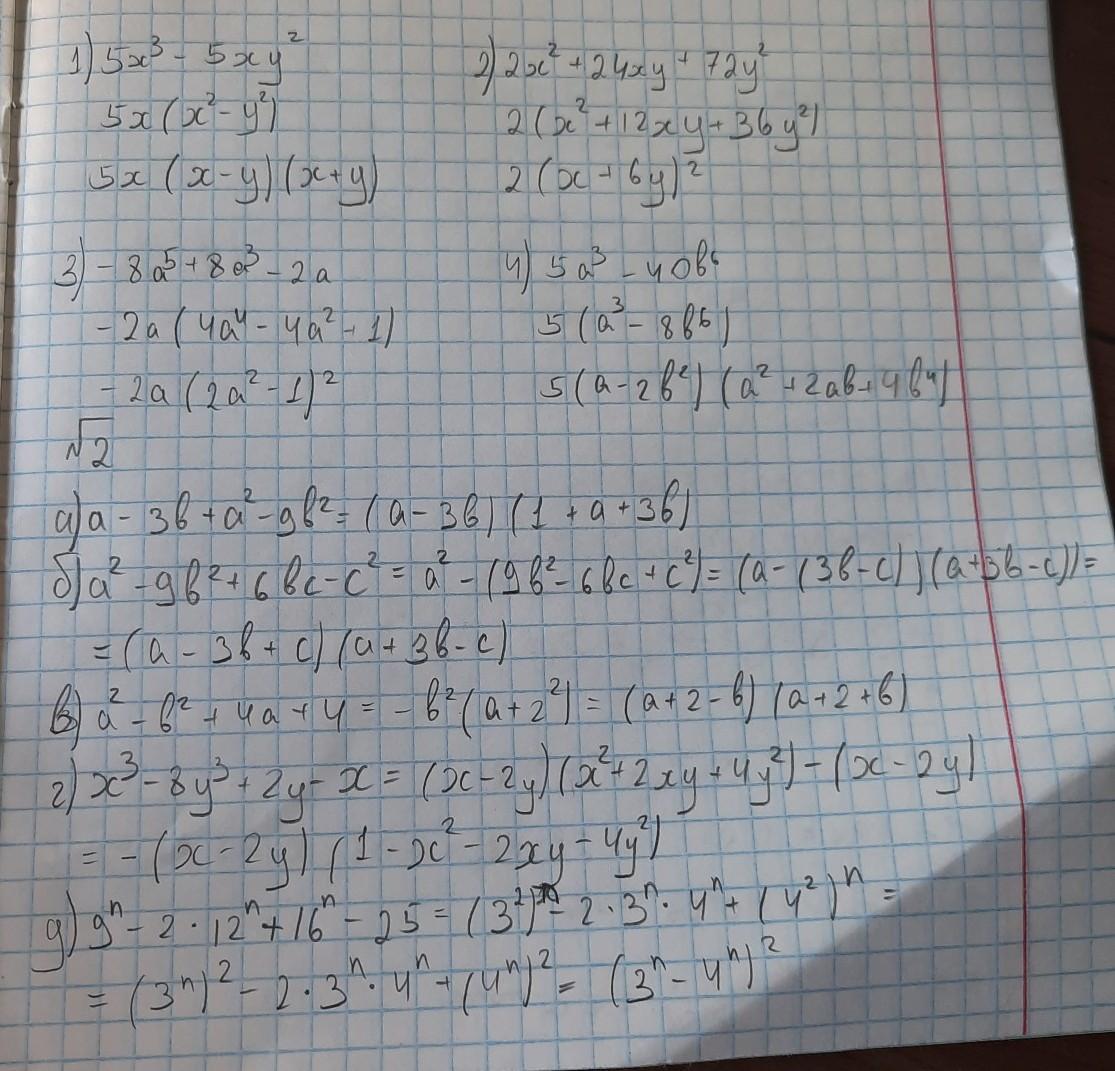 1) 5x³ - 5xy²
5x(x² - y²)
5x (x - y) (x + y)
2) 2x² + 24xy + 72y²
2(x² + 12xy + 36y²)
2(x + 6y)²
3) - 8a⁵ + 8a³ - 2a
- 2a(4a⁴ - 4a² + 1)
- 2a(2a² - 1)²
4) 5a³ - 40b⁶
5(a³ - 8b⁶)
5(a - 2b²) (a² + 2ab + 4b⁴)
√2
а) a - 3b + a² - 9b² = (a - 3b) (1 + a + 3b)
б) a² - 9b² + 6bc - c² = a² - (9b² - 6bc + c²) = (a - (3b - c)) (a + 3b - c)) =
= (a - 3b + c) (a + 3b - c)
в) a² - b² + 4a + 4 = - b² (a + 2²) = (a + 2 - b) (a + 2 + b)
г) x³ - 8y³ + 2y - x = (x - 2y) (x² + 2xy + 4y²) - (x - 2y)
= - (x - 2y) (1 - x² - 2xy - 4y²)
д) 9ⁿ - 2 · 12ⁿ + 16ⁿ - 25 = (3²)ⁿ - 2 · 3ⁿ · 4ⁿ + (4²)ⁿ =
= (3ⁿ)² - 2 · 3ⁿ · 4ⁿ + (4ⁿ)² = (3ⁿ - 4ⁿ)²